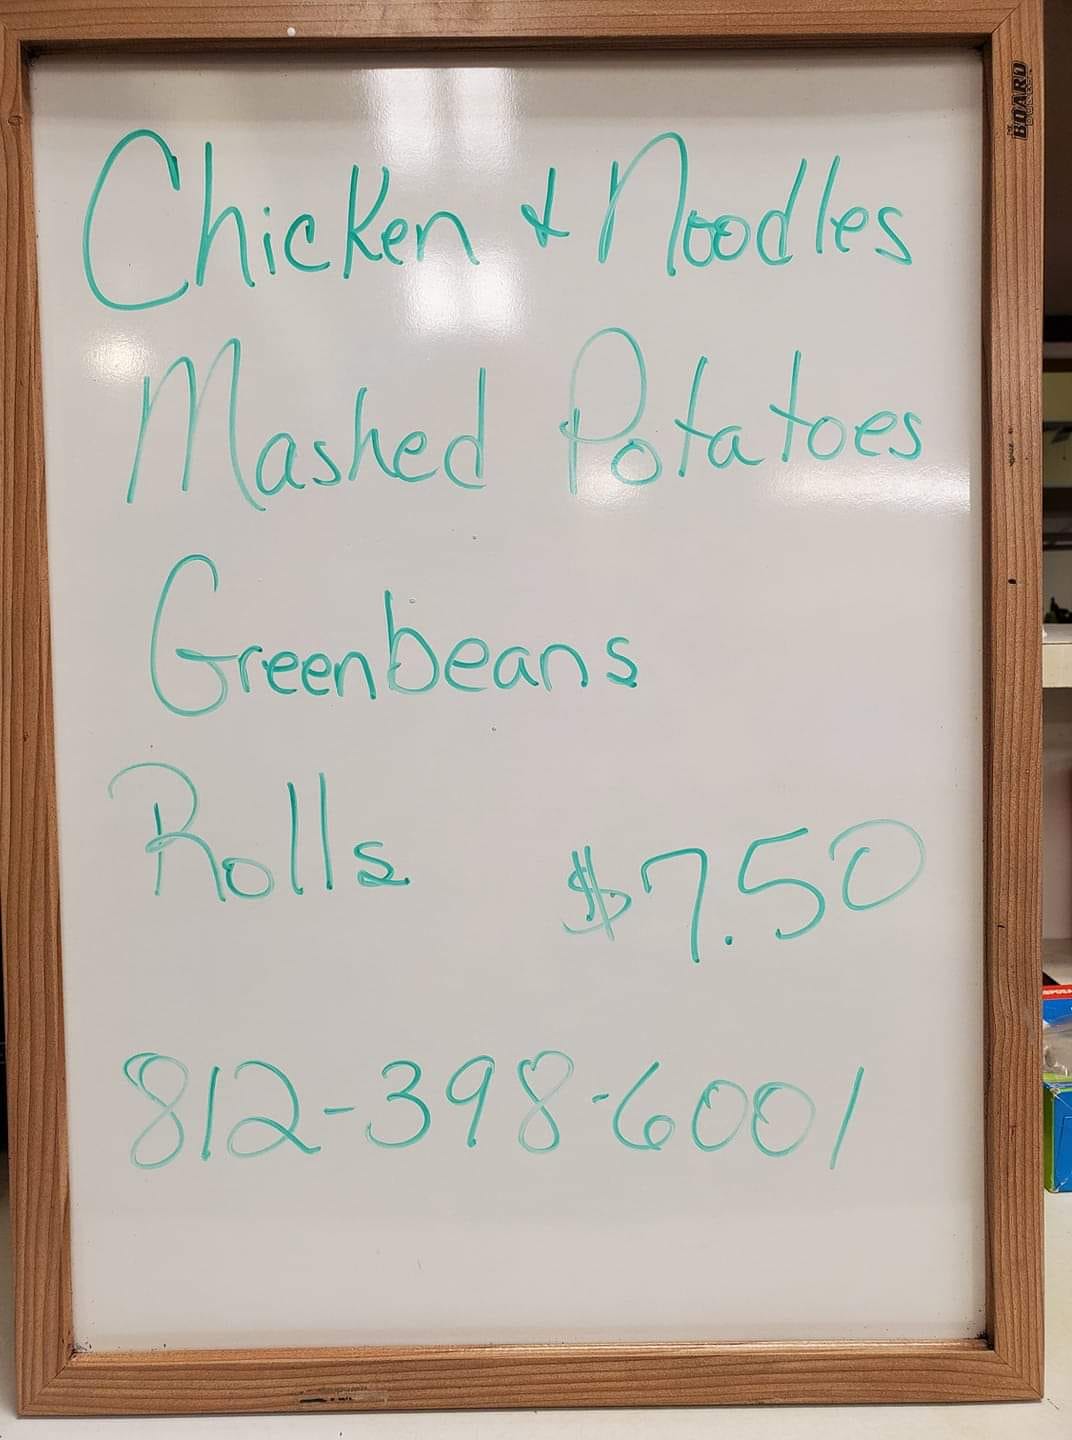 Chicken & Noodles
Mashed Potatoes
Greenbeans
Rolls $7.50
812-398-6001
BOARD